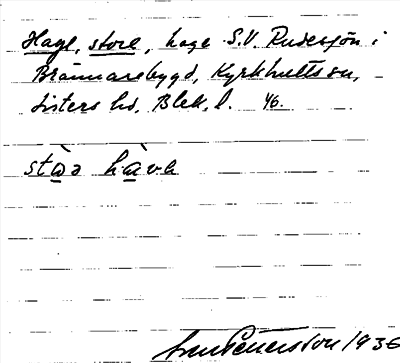 Hage, store, hage S.V. Rudesjön i
Brännarebygd, Kyrkhults sn,
Listers hd, Blek. l. 46.
stàə hàvɐ
Pettersson 1936